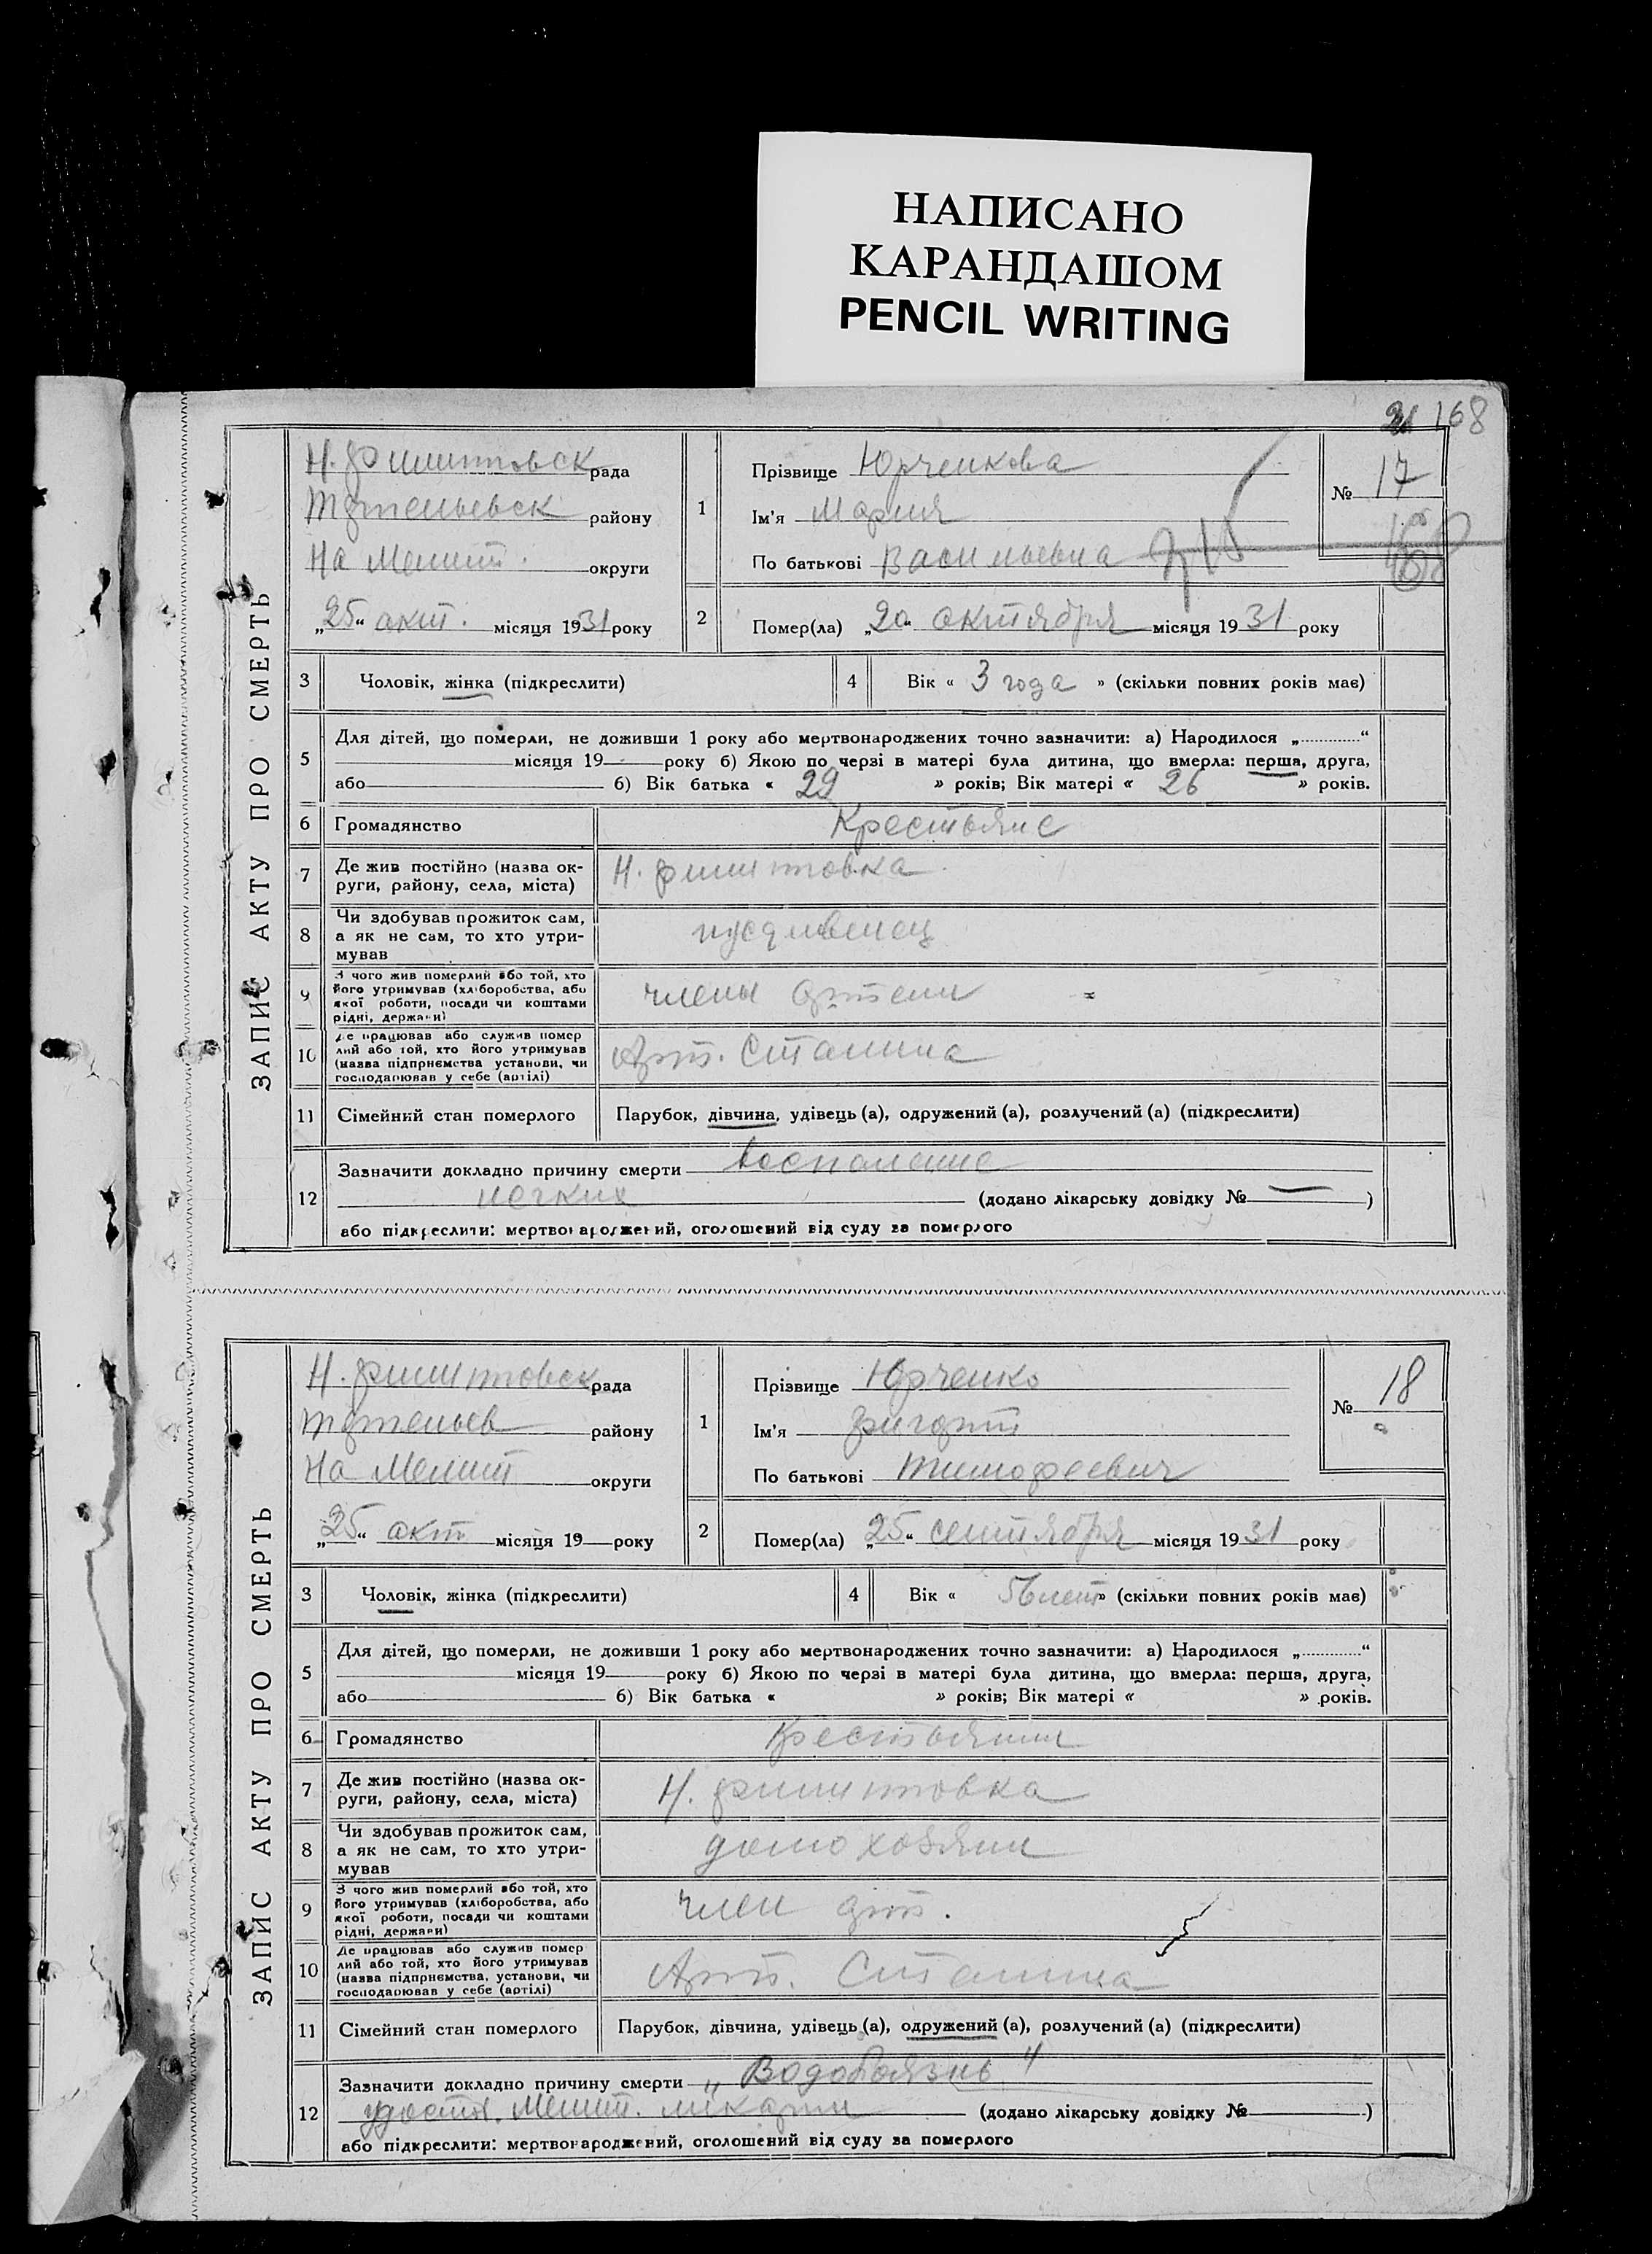 НАПИСАНО
КАРАНДАШОМ
PENCIL WRITING
168
ЗАПИС АКТУ ПРО СМЕРТЬ
рада
району
На Мелит. округи
„25“ окт. місяця 1931 року
1
Прізвище Юрченкова
Ім'я Мария
По батькові Васильевна
№ 17
2
Помер(ла) „20“ октября місяця 1931 року
3
Чоловік, жінка (підкреслити)
4
Вік « 3 года » (скільки повних років має)
5
Для дітей, що померли, не доживши 1 року або мертвонароджених точно зазначити: а) Народилося „............“
місяця 19 року б) Якою по черзі в матері була дитина, що вмерла: перша, друга,
або б) Вік батька « 29 » років; Вік матері « 26 » років.
6
Громадянство
Крестьяне
7
Де жив постійно (назва ок-
руги, району, села, міста)
8
Чи здобував прожиток сам,
а як не сам, то хто утри-
мував
иждивенец
9
З чого жив померлий або той, хто
його утримував (хліборобства, або
якої роботи, посади чи коштами
рідні, держави)
члены артели
10
Де працював або служив помер
лий або той, хто його утримував
(назва підприємства установи, чи
господарював у себе (артілі)
Арт. Сталина
11
Сімейний стан померлого
Парубок, дівчина, удівець (а), одружений (а), розлучений (а) (підкреслити)
12
Зазначити докладно причину смерти воспаление
легких (додано лікарську довідку № — )
або підкреслити: мертвонароджений, оголошений від суду за померлого
ЗАПИС АКТУ ПРО СМЕРТЬ
рада
району
На Мелит округи
„25“ окт місяця 19 року
1
Прізвище Юрченко
Ім'я
По батькові Тимофеевич
№ 18
2
Помер(ла) „25“ сентября місяця 1931 року
3
Чоловік, жінка (підкреслити)
4
Вік « 56 лет » (скільки повних років має)
5
Для дітей, що померли, не доживши 1 року або мертвонароджених точно зазначити: а) Народилося „............“
місяця 19 року б) Якою по черзі в матері була дитина, що вмерла: перша, друга,
або б) Вік батька « » років; Вік матері « » років.
6
Громадянство
Крестьянин
7
Де жив постійно (назва ок-
руги, району, села, міста)
8
Чи здобував прожиток сам,
а як не сам, то хто утри-
мував
домохозяин
9
З чого жив померлий або той, хто
його утримував (хліборобства, або
якої роботи, посади чи коштами
рідні, держави)
член арт.
10
Де працював або служив помер
лий або той, хто його утримував
(назва підприємства, установи, чи
господарював у себе (артілі)
Арт. Сталина
11
Сімейний стан померлого
Парубок, дівчина, удівець (а), одружений (а), розлучений (а) (підкреслити)
12
Зазначити докладно причину смерти „Водобоязнь"
Мелит. (додано лікарську довідку № )
або підкреслити: мертвонароджений, оголошений від суду за померлого